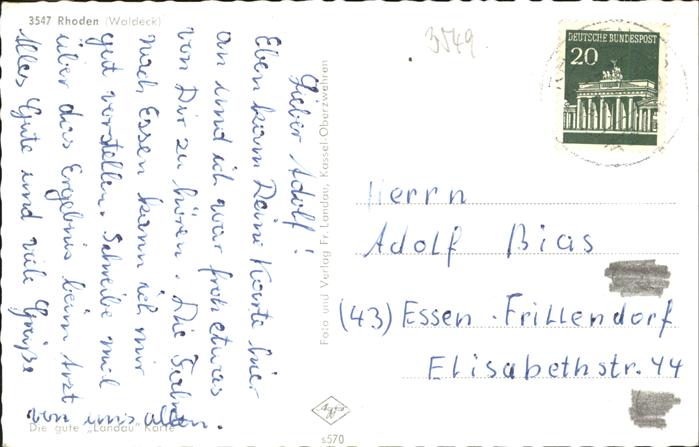 3547 Rhoden (Waldeck)
3549
DEUTSCHE BUNDESPOST
20
Lieber Adolf!
Eben kam Deine Karte hier
an und ich war froh etwas
von Dir zu hören. Die Fahrt
nach Essen kann ich mir
gut vorstellen. Schreibe mal
über das Ergebnis beim Arzt
Alles Gute und viele Grüße
von uns allen.
Foto und Verlag Fr. Landau, Kassel-Oberzwehren
Herrn
Adolf Bias
(43) Essen-Frillendorf
Elisabethstr. 44
Die gute „Landau" Karte
Agfa
s570